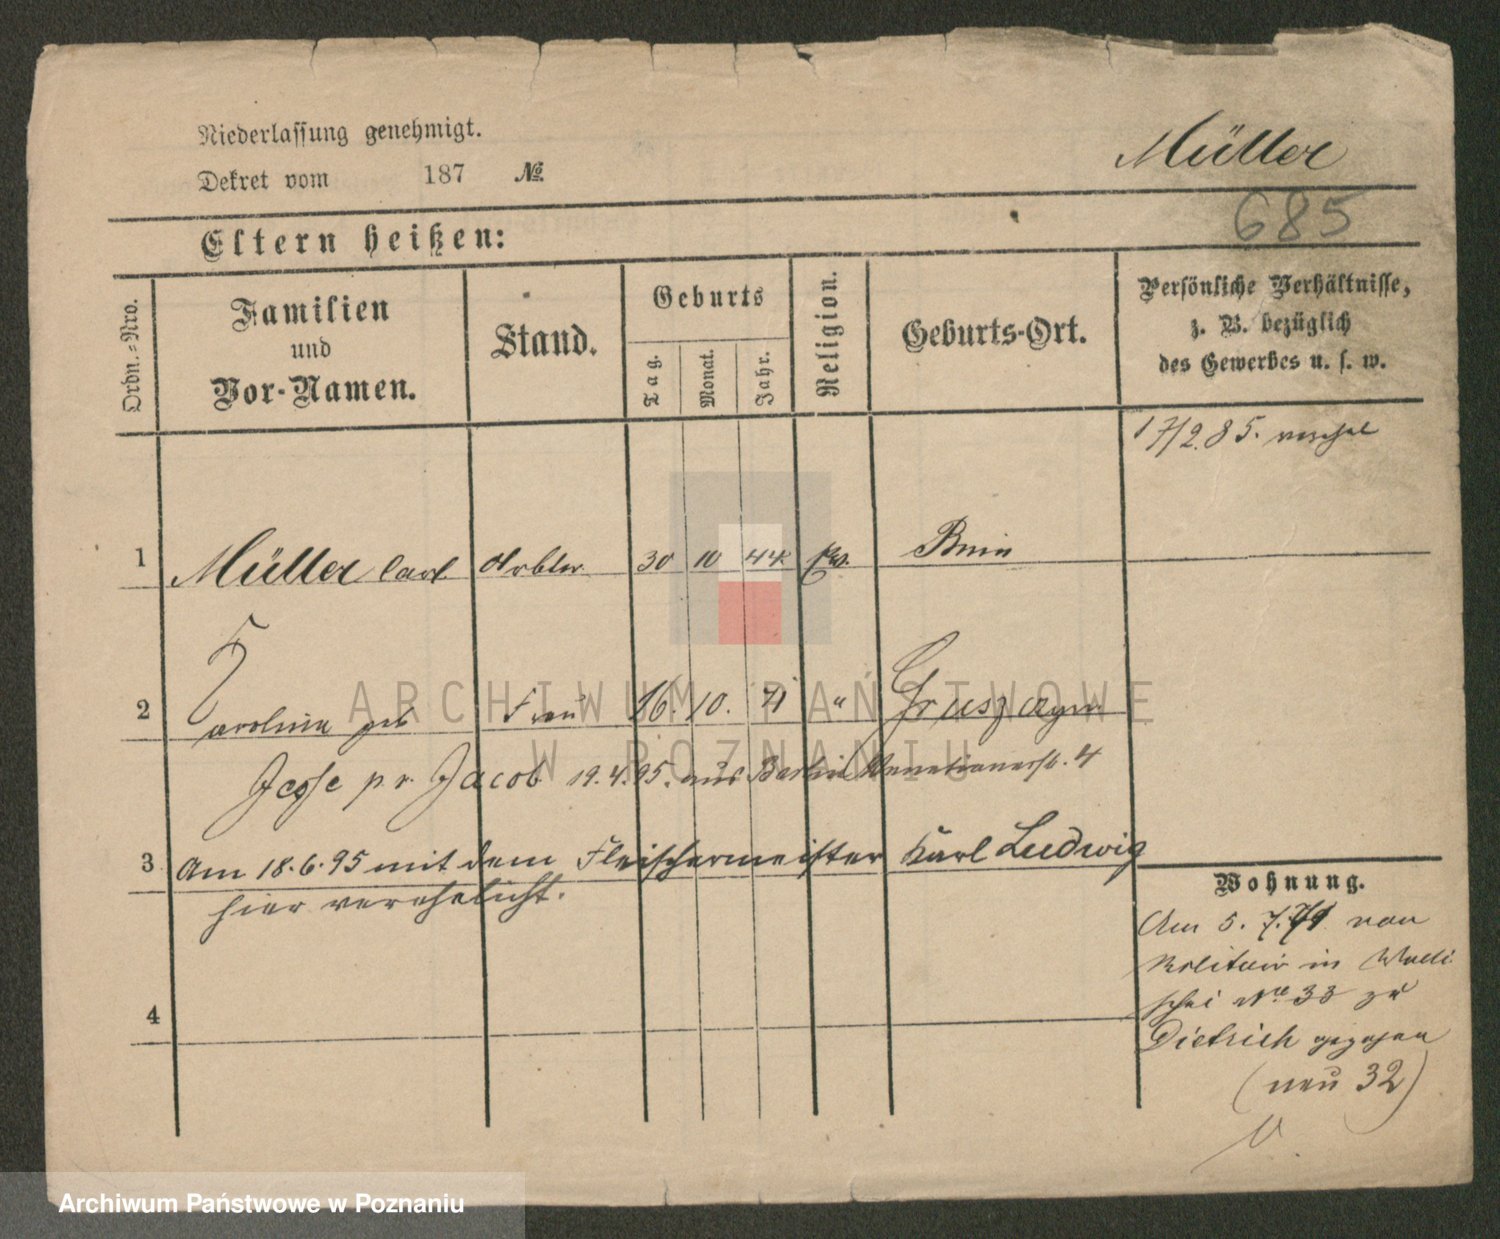 Niederlassung genehmigt.
Dekret vom 187 №.
Müller
685
Eltern heißen:
Ordn.-Nro.
Familien
und
Vor-Namen.
Stand.
Geburts
Tag.
Monat.
Jahr.
Religion.
Geburts-Ort.
Persönliche Verhältnisse,
z. B. bezüglich
des Gewerbes u. s. w.
17/2.85.
1 Müller Carl Arbtr. 30 10 44 Ev. Bnin
2 geb Frau 16. 10. 71 "
Jesse pr. Jacob 19.4.95. aus Berlin 4
3 Am 18.6.95 mit dem Fleischermeister Karl Ludwig
hier verehelicht.
4
Wohnung.
Am 5. 7. 71 von
Militair in Walli
schei No 33 zu
Dietrich gezogen
(neu 32)
ARCHIWUM PAŃSTWOWE
W POZNANIU
Archiwum Państwowe w Poznaniu